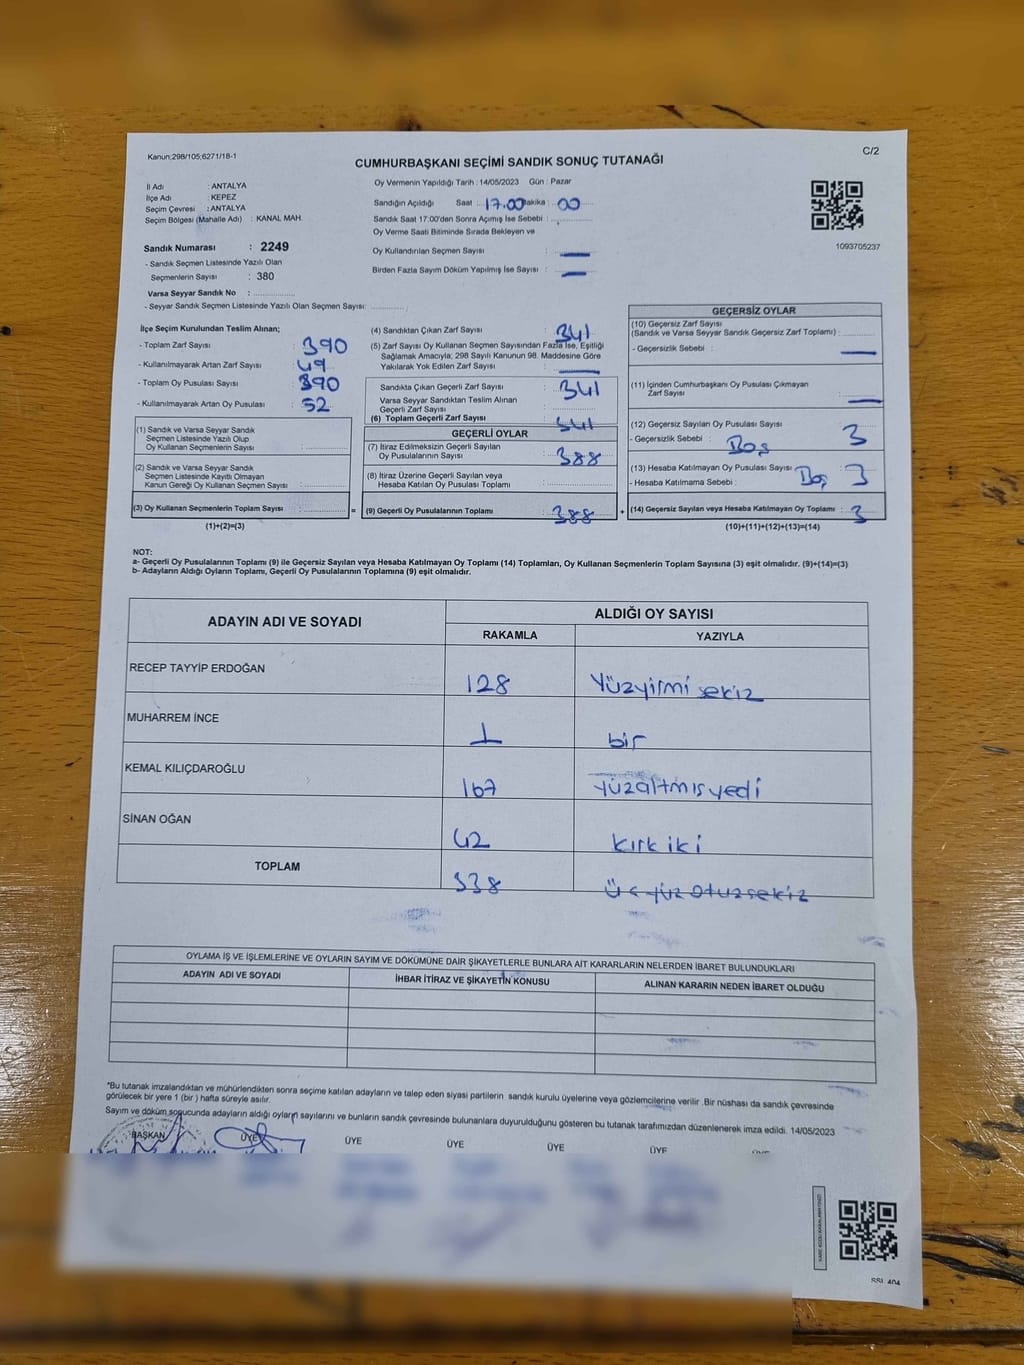 Kanun;298/105;6271/18-1
C/2
CUMHURBAŞKANI SEÇİMİ SANDIK SONUÇ TUTANAĞI
İl Adı : ANTALYA
İlçe Adı : KEPEZ
Seçim Çevresi : ANTALYA
Seçim Bölgesi (Mahalle Adı) : KANAL MAH.
Sandık Numarası : 2249
- Sandık Seçmen Listesinde Yazılı Olan
Seçmenlerin Sayısı : 380
Varsa Seyyar Sandık No : ..............
- Seyyar Sandık Seçmen Listesinde Yazılı Olan Seçmen Sayısı: ............
Oy Vermenin Yapıldığı Tarih : 14/05/2023 Gün : Pazar
Sandığın Açıldığı Saat 17.00 Dakika : 00
Sandık Saat 17:00'den Sonra Açımış İse Sebebi :
Oy Verme Saati Bitiminde Sırada Bekleyen ve
Oy Kullandırılan Seçmen Sayısı : —
Birden Fazla Sayım Döküm Yapılmış İse Sayısı : —
1093705237
İlçe Seçim Kurulundan Teslim Alınan;
- Toplam Zarf Sayısı : 390
- Kullanılmayarak Artan Zarf Sayısı : 49
- Toplam Oy Pusulası Sayısı : 390
- Kullanılmayarak Artan Oy Pusulası : 52
(1) Sandık ve Varsa Seyyar Sandık
Seçmen Listesinde Yazılı Olup
Oy Kullanan Seçmenlerin Sayısı :
(2) Sandık ve Varsa Seyyar Sandık
Seçmen Listesinde Kayıtlı Olmayan
Kanun Gereği Oy Kullanan Seçmen Sayısı :
(3) Oy Kullanan Seçmenlerin Toplam Sayısı : =
(1)+(2)=(3)
(4) Sandıktan Çıkan Zarf Sayısı : 341
(5) Zarf Sayısı Oy Kullanan Seçmen Sayısından Fazla İse, Eşitliği
Sağlamak Amacıyla, 298 Sayılı Kanunun 98. Maddesine Göre
Yakılarak Yok Edilen Zarf Sayısı : —
Sandıkta Çıkan Geçerli Zarf Sayısı : 341
Varsa Seyyar Sandıktan Teslim Alınan
Geçerli Zarf Sayısı :
(6) Toplam Geçerli Zarf Sayısı : 341
GEÇERLİ OYLAR
(7) İtiraz Edilmeksizin Geçerli Sayılan
Oy Pusulalarının Sayısı : 388
(8) İtiraz Üzerine Geçerli Sayılan veya
Hesaba Katılan Oy Pusulası Toplamı :
(9) Geçerli Oy Pusulalarının Toplamı : 388 +
GEÇERSİZ OYLAR
(10) Geçersiz Zarf Sayısı
(Sandık ve Varsa Seyyar Sandık Geçersiz Zarf Toplamı) :
- Geçersizlik Sebebi : —
(11) İçinden Cumhurbaşkanı Oy Pusulası Çıkmayan
Zarf Sayısı : —
(12) Geçersiz Sayılan Oy Pusulası Sayısı : 3
- Geçersizlik Sebebi : Boş
(13) Hesaba Katılmayan Oy Pusulası Sayısı : 3
- Hesaba Katılmama Sebebi : Boş
(14) Geçersiz Sayılan veya Hesaba Katılmayan Oy Toplamı : 3
(10)+(11)+(12)+(13)=(14)
NOT:
a- Geçerli Oy Pusulalarının Toplamı (9) ile Geçersiz Sayılan veya Hesaba Katılmayan Oy Toplamı (14) Toplamları, Oy Kullanan Seçmenlerin Toplam Sayısına (3) eşit olmalıdır. (9)+(14)=(3)
b- Adayların Aldığı Oyların Toplamı, Geçerli Oy Pusulalarının Toplamına (9) eşit olmalıdır.
ADAYIN ADI VE SOYADI
ALDIĞI OY SAYISI
RAKAMLA YAZIYLA
RECEP TAYYİP ERDOĞAN 128 Yüzyirmi sekiz
MUHARREM İNCE 1 bir
KEMAL KILIÇDAROĞLU 167 yüzaltmışyedi
SİNAN OĞAN 42 kırk iki
TOPLAM 338 Üç yüz otuzsekiz
OYLAMA İŞ VE İŞLEMLERİNE VE OYLARIN SAYIM VE DÖKÜMÜNE DAİR ŞİKAYETLERLE BUNLARA AİT KARARLARIN NELERDEN İBARET BULUNDUKLARI
ADAYIN ADI VE SOYADI İHBAR İTİRAZ VE ŞİKAYETİN KONUSU ALINAN KARARIN NEDEN İBARET OLDUĞU
*Bu tutanak imzalandıktan ve mühürlendikten sonra seçime katılan adayların ve talep eden siyasi partilerin sandık kurulu üyelerine veya gözlemcilerine verilir .Bir nüshası da sandık çevresinde
görülecek bir yere 1 (bir ) hafta süreyle asılır.
Sayım ve döküm sonucunda adayların aldığı oyların sayılarını ve bunların sandık çevresinde bulunanlara duyurulduğunu gösteren bu tutanak tarafımızdan düzenlenerek imza edildi. 14/05/2023
BAŞKAN ÜYE ÜYE ÜYE ÜYE ÜYE